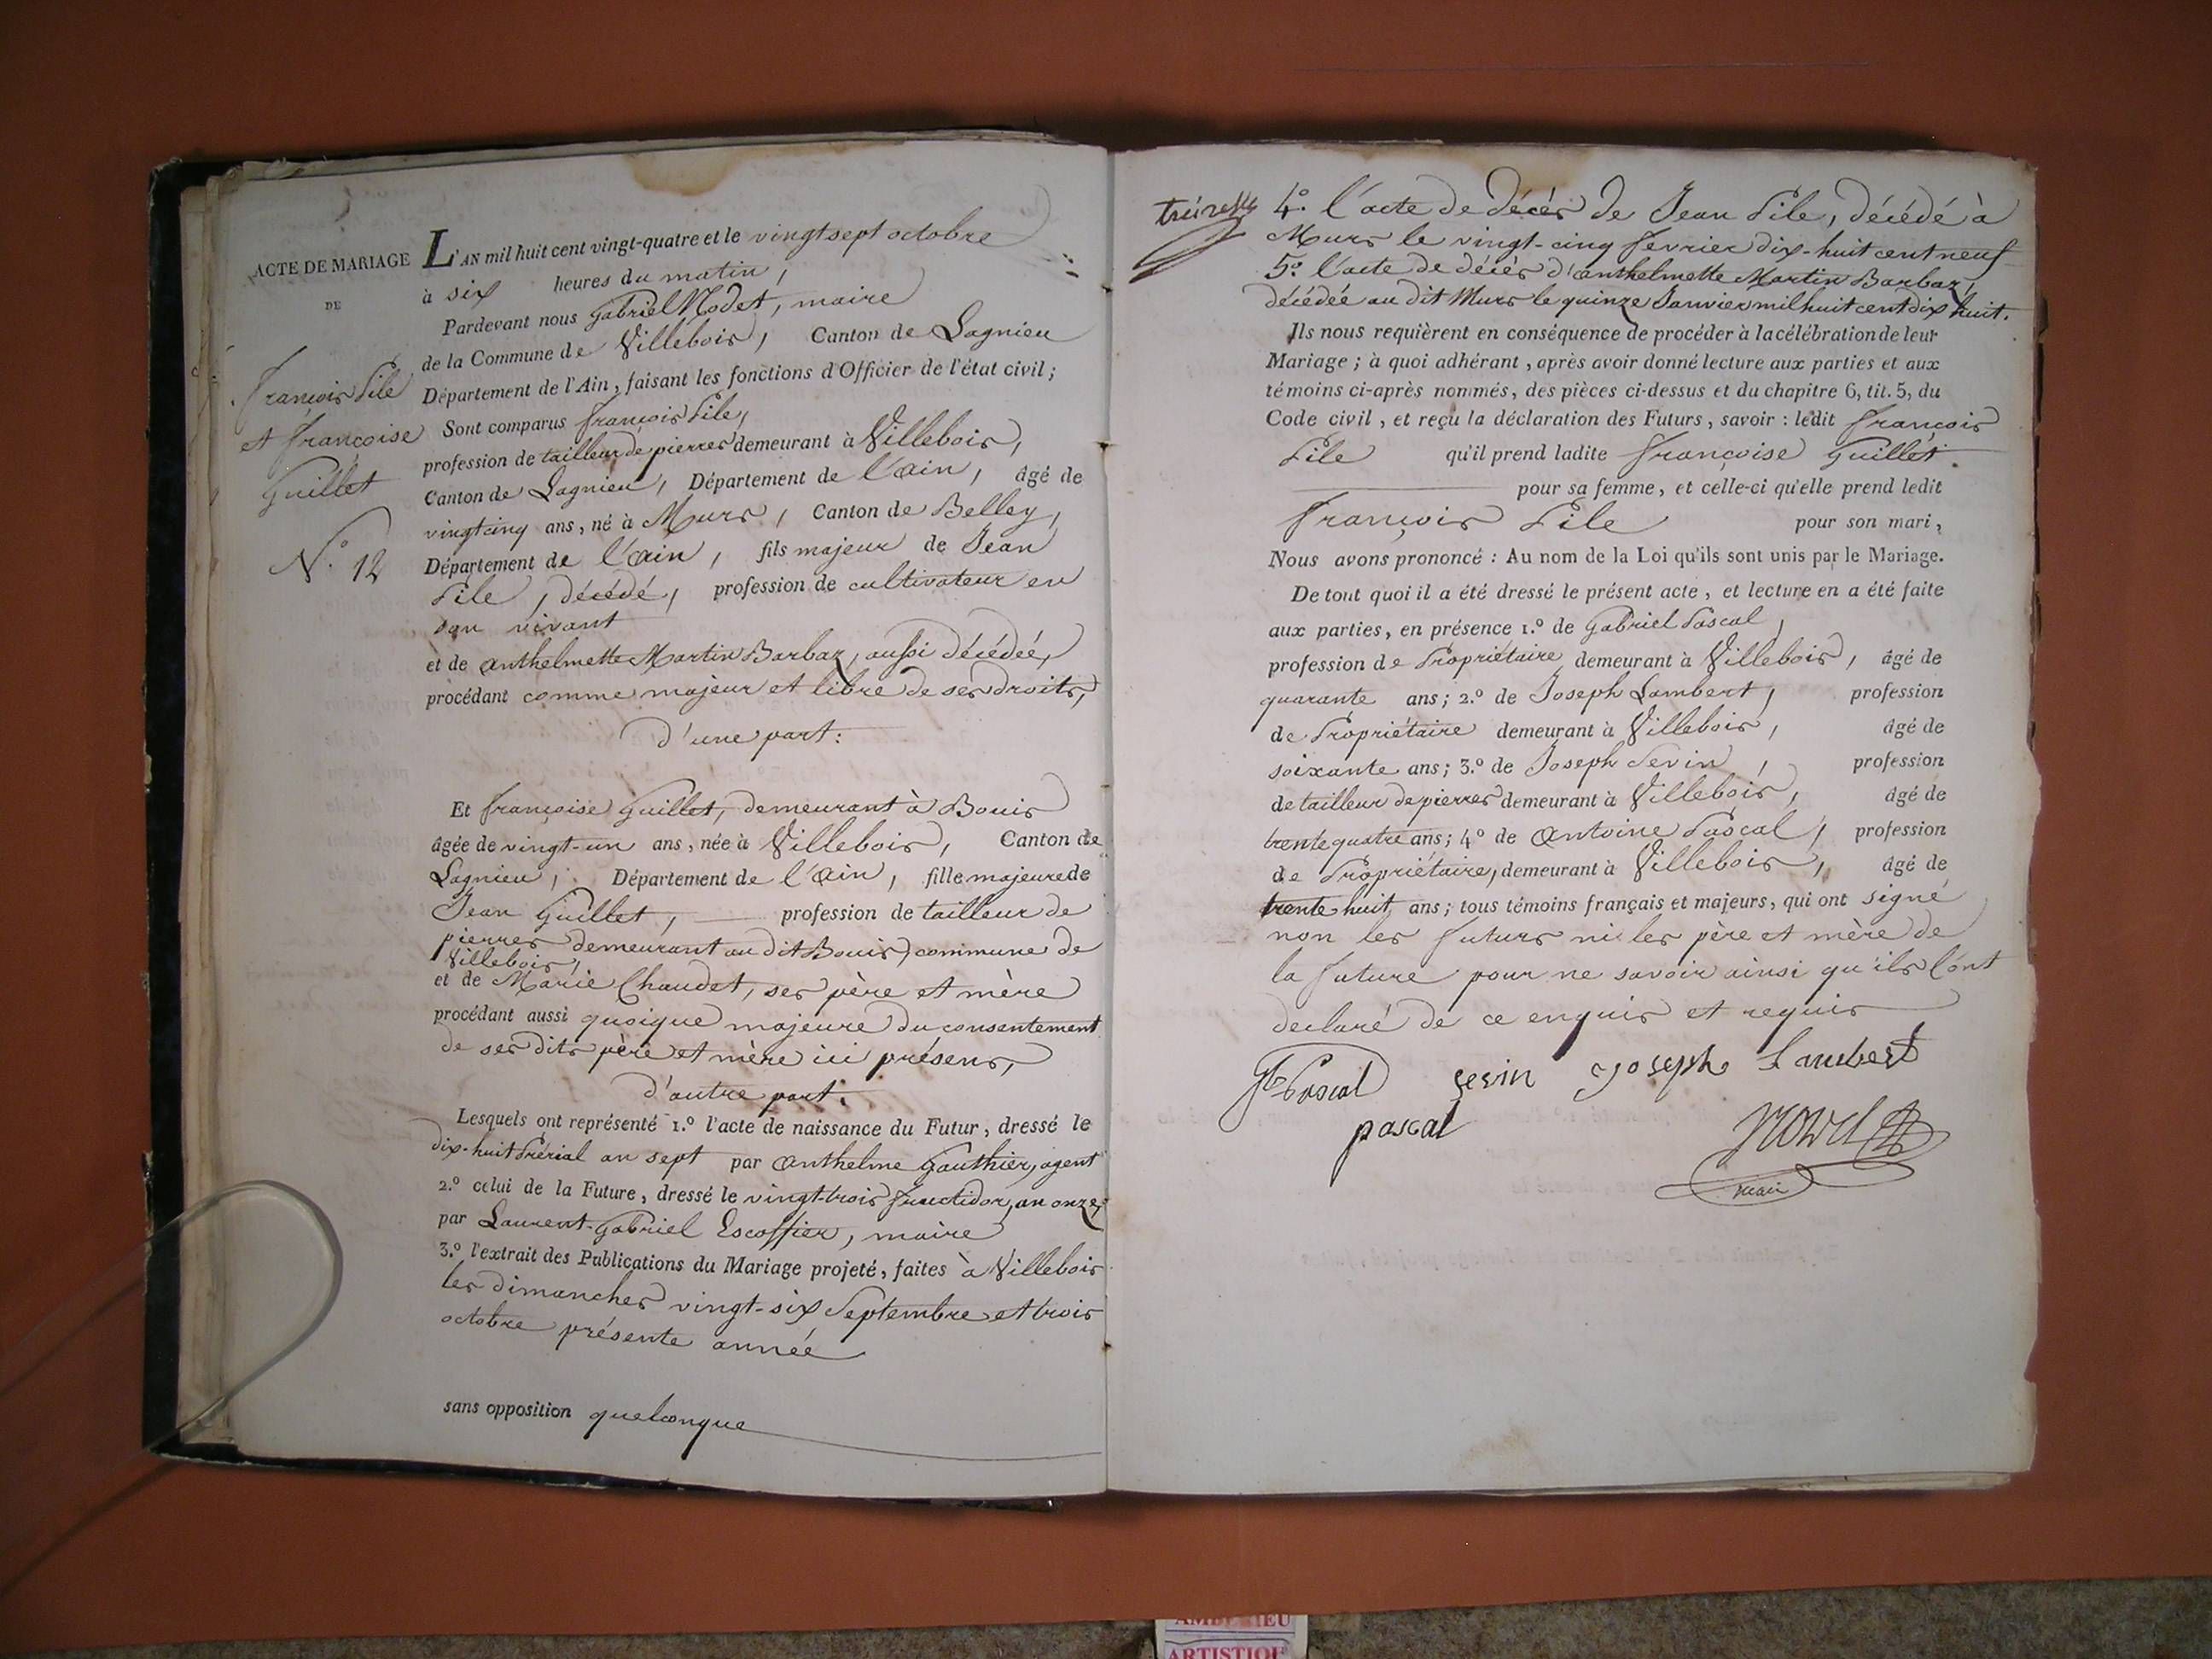 ACTE DE MARIAGE
DE
François Pile
et Françoise
Guillet
N.° 12
L'AN mil huit cent vingt-quatre et le vingt sept octobre
à six heures du matin,
Pardevant nous Gabriel Nodet, maire
de la Commune de Villebois, Canton de Lagnieu
Département de l'Ain, faisant les fonctions d'Officier de l'état civil;
Sont comparus François Pile,
profession de tailleur de pierres demeurant à Villebois,
Canton de Lagnieu, Département de l'ain, âgé de
vingt cinq ans, né à Murs, Canton de Belley,
Département de l'ain, fils majeur de Jean
Pile, décédé, profession de cultivateur en
son vivant
et de anthelmette Martin Barbaz, aussi décédée,
procédant comme majeur et libre de ses droits,
d'une part:
Et françoise Guillet, demeurant à Bouis
âgée de vingt-un ans, née à Villebois, Canton de
Lagnieu, Département de l'ain, fille majeure de
Jean Guillet, profession de tailleur de
pierres demeurant au dit Bouis commune de
Villebois,
et de Marie Chaudet, ses père et mère
procédant aussi quoique majeure du consentement
de ses dits père et mère ici présens,
d'autre part.
Lesquels ont représenté 1.° l'acte de naissance du Futur, dressé le
dix-huit Prérial an sept par anthelme Gauthier, agent
2.° celui de la Future, dressé le vingt-trois fructidor, an onze,
par Laurent-Gabriel Escoffier, maire
3.° l'extrait des Publications du Mariage projeté, faites à Villebois
les dimanches vingt-six Septembre et trois
octobre présente année
sans opposition quelconque
4.° l'acte de décès de Jean Pile, décédé à
Murs le vingt-cinq fevrier dix-huit cent neuf
5.° l'acte de décès d'anthelmette Martin Barbaz,
décédée au dit Murs le quinze Janvier mil huit cent dix huit.
Ils nous requièrent en conséquence de procéder à la célébration de leur
Mariage; à quoi adhérant, après avoir donné lecture aux parties et aux
témoins ci-après nommés, des pièces ci-dessus et du chapitre 6, tit. 5, du
Code civil, et reçu la déclaration des Futurs, savoir: ledit françois
Pile qu'il prend ladite françoise Guillet.
pour sa femme, et celle-ci qu'elle prend ledit
françois Pile pour son mari,
Nous avons prononcé: Au nom de la Loi qu'ils sont unis par le Mariage.
De tout quoi il a été dressé le présent acte, et lecture en a été faite
aux parties, en présence 1.° de Gabriel Pascal,
profession de Propriétaire demeurant à Villebois, âgé de
quarante ans; 2.° de Joseph Lambert, profession
de Propriétaire demeurant à Villebois, âgé de
soixante ans; 3.° de Joseph Sevin, profession
de tailleur de pierres demeurant à Villebois, âgé de
trente quatre ans; 4.° de Antoine Pascal, profession
de Propriétaire, demeurant à Villebois, âgé de
trente huit ans; tous témoins français et majeurs, qui ont signé
non les futurs ni les père et mère de
la future pour ne savoir ainsi qu'ils l'ont
declaré de ce enquis et requis
Pascal sevin Joseph Lambert
pascal
maire
ARTISTIQUE